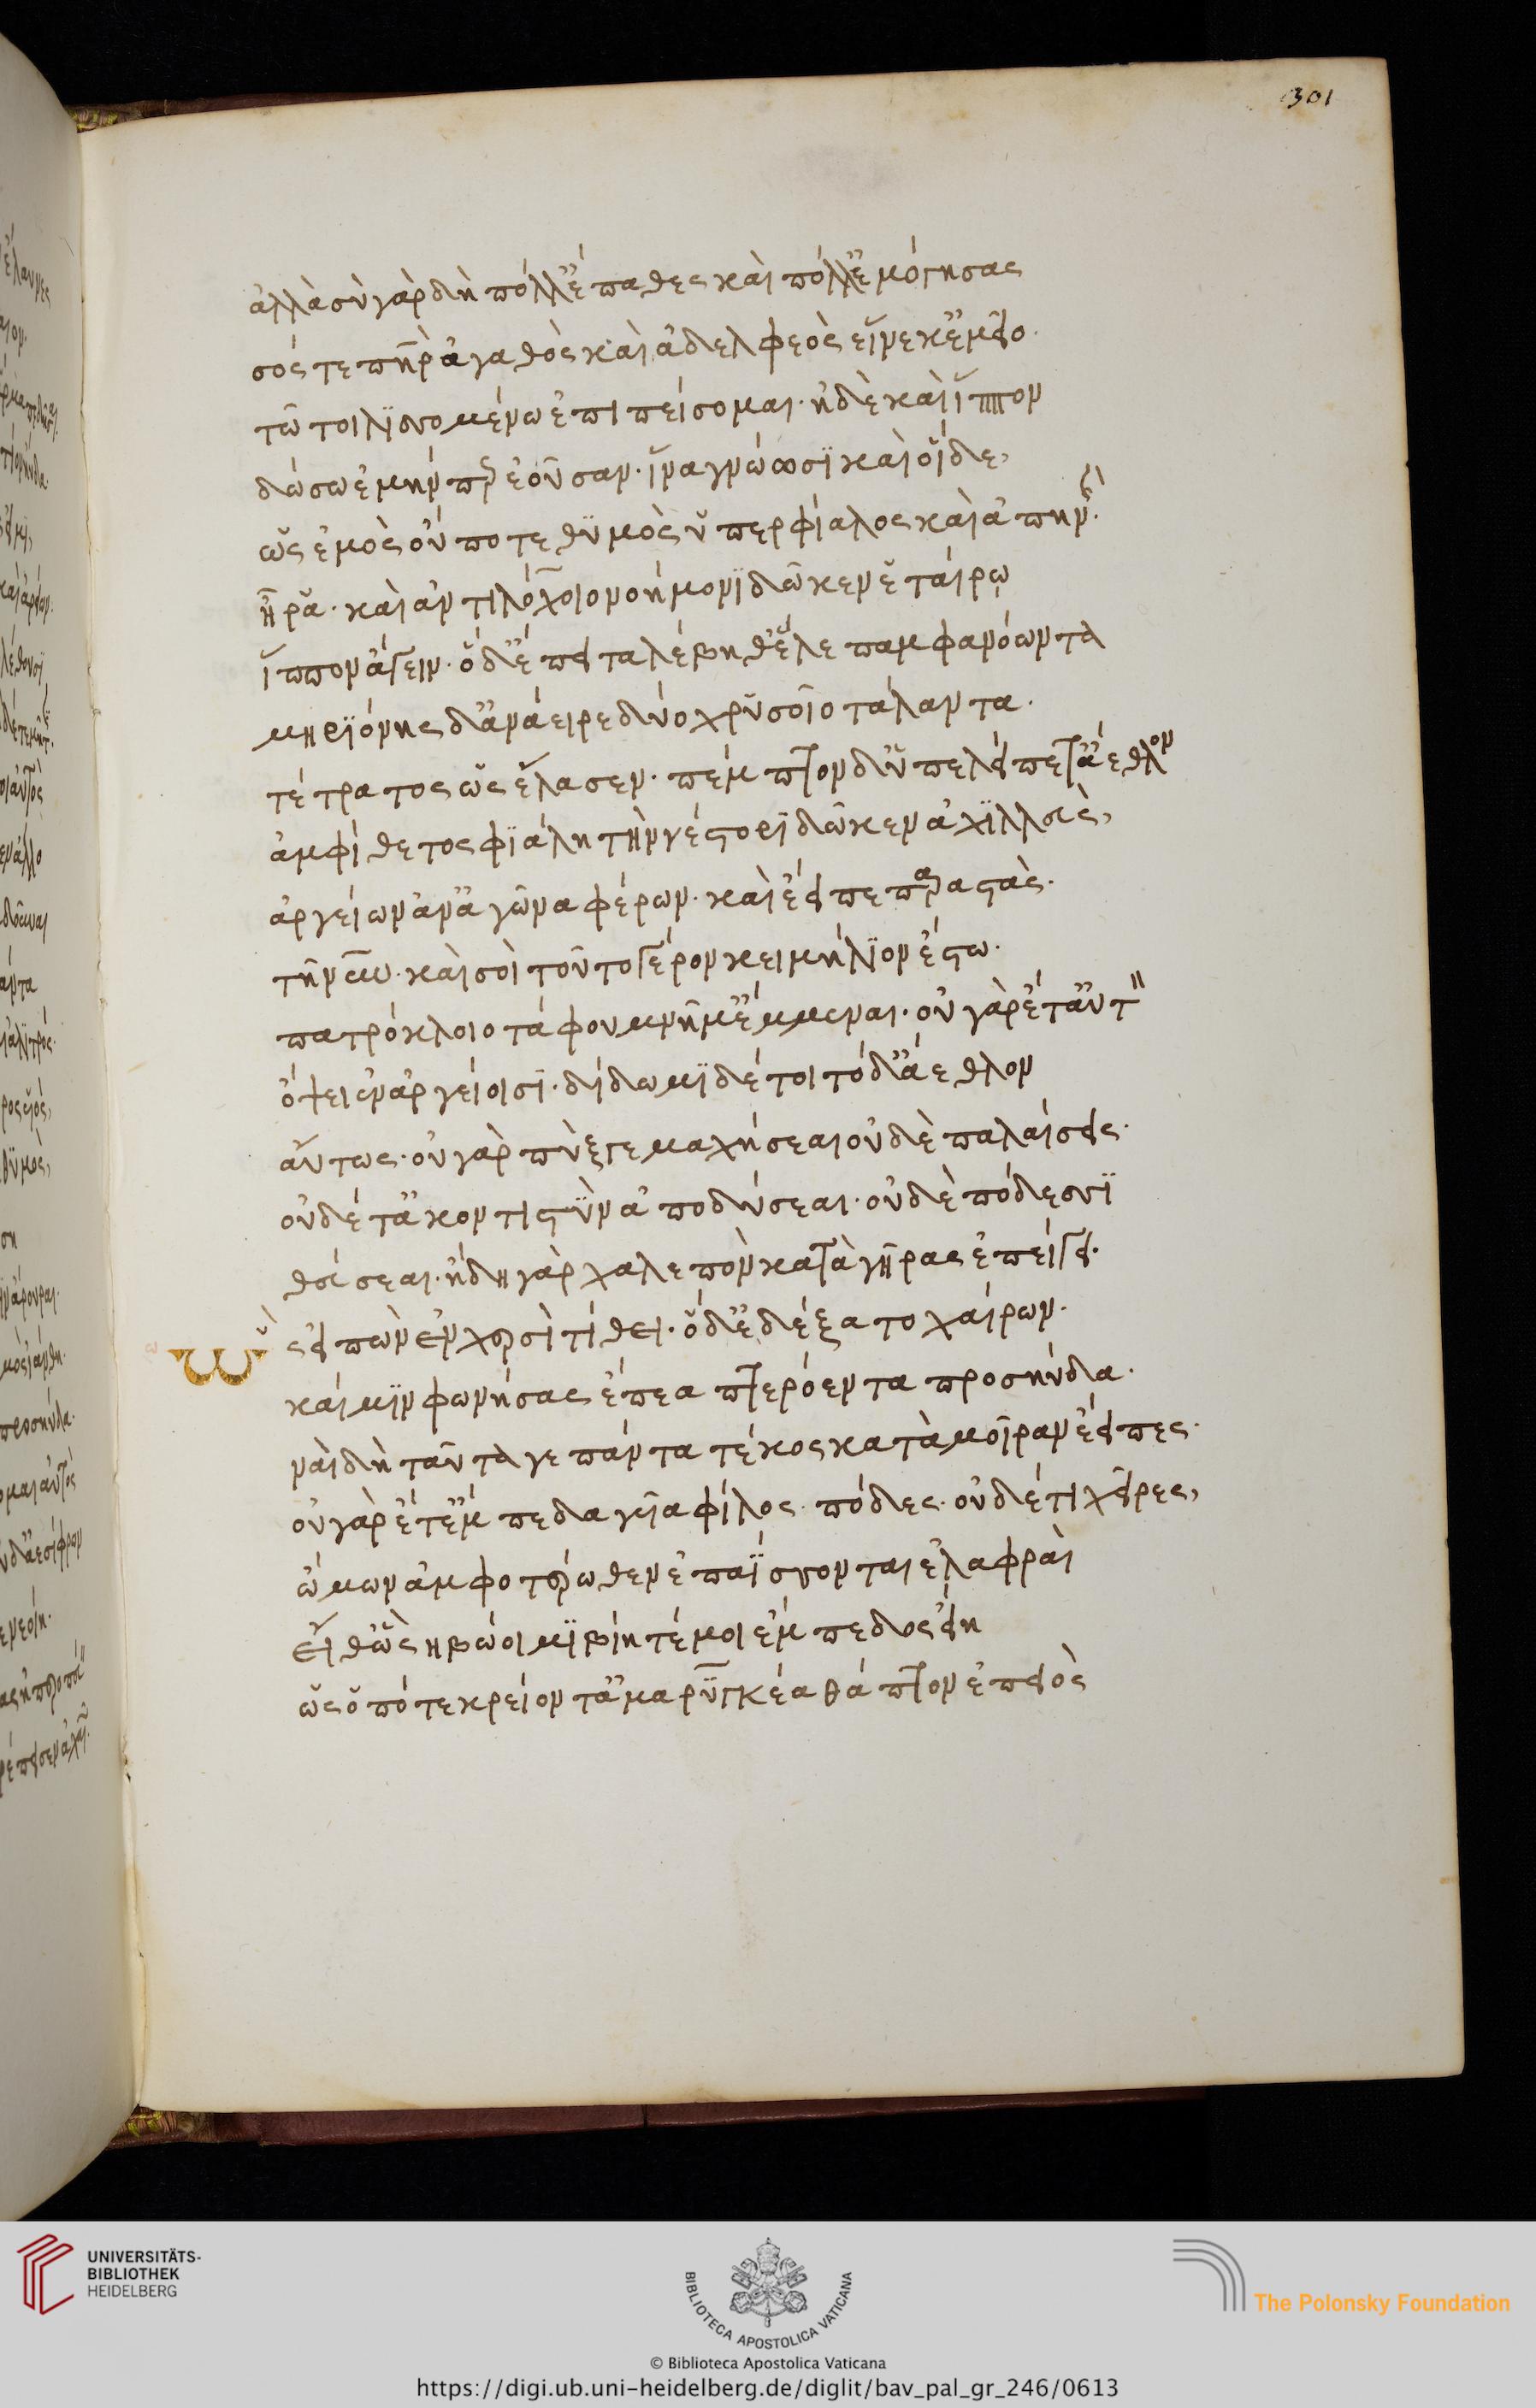 301
ἀλλὰ σὺ γὰρ δὴ πόλλ' ἔπαθες καὶ πόλλ' ἐμόγησας
σός τε πατὴρ ἀγαθὸς καὶ ἀδελφεὸς εἵνεκ' ἐμεῖο·
τῶ τοι λϊσσομένω ἐπιπείσομαι· ἠδὲ καὶ ἵππον
δώσω ἐμήν περ ἐοῦσαν· ἵνα γνώωσϊ καὶ οἵδε,
ὡς ἐμὸς οὔποτε θϋμὸς ὑπερφίαλος καὶ ἀπηνής·
ἦ ῥα· καὶ ἀντιλόχοιο νοήμονϊ δῶκεν ἑταίρῳ
ἵππον ἄγειν· ὁ δ' ἔπειτα λέβηθ' ἕλε παμφανόωντα
μηρϊόνης δ' ἀνάειρε δύο χρυσοῖο τάλαντα.
τέτρατος ὡς ἔλασεν· πέμπτον δ' ὑπελείπετ' ἄεθλον
ἀμφίθετος φϊάλη τὴν νέστορϊ δῶκεν ἀχϊλλεὺς,
ἀργείων ἀν' ἀγῶνα φέρων· καὶ ἔειπε παραστὰς.
τῆ νῦν· καὶ σοὶ τοῦτο γέρον κειμήλϊον ἔστω.
πατρόκλοιο τάφου μνῆμ' ἔμμεναι· οὐ γὰρ ἔτ' αὐτ"
ὄψει ἐν ἀργείοισϊ· δίδωμϊ δέ τοι τόδ' ἄεθλον
αὔτως· οὐ γὰρ πύξ γε μαχήσεαι οὐδὲ παλαίσεις.
οὐδέ τ' ἀκοντιστὺν ἀποδύσεαι· οὐδὲ πόδεσσϊ
θεύσεαι· ἤδη γὰρ χαλεπὸν κατὰ γῆρας ἐπείγει.
ὣς εἰπὼν ἐν χερσὶ τίθει· ὁ δ' ἐδέξατο χαίρων.
καί μϊν φωνήσας ἔπεα πτερόεντα προσηύδα.
ναὶ δὴ ταῦτά γε πάντα τέκος κατὰ μοῖραν ἔειπες.
οὐ γὰρ ἔτ' ἔμπεδα γυῖα φίλος πόδες· οὐδέ τι χεῖρες,
ὤμων ἀμφοτέρωθεν ἐπαΐσσονται ἐλαφραὶ
εἴθ' ὣς ἡβώοιμϊ βίη τέ μοι ἔμπεδος εἴη
ὡς ὁπότε κρείοντ' ἀμαρυγκέα θάπτον ἐπειοὶ
UNIVERSITÄTS-
BIBLIOTHEK
HEIDELBERG
BIBLIOTECA APOSTOLICA VATICANA
The Polonsky Foundation
© Biblioteca Apostolica Vaticana
https://digi.ub.uni-heidelberg.de/diglit/bav_pal_gr_246/0613